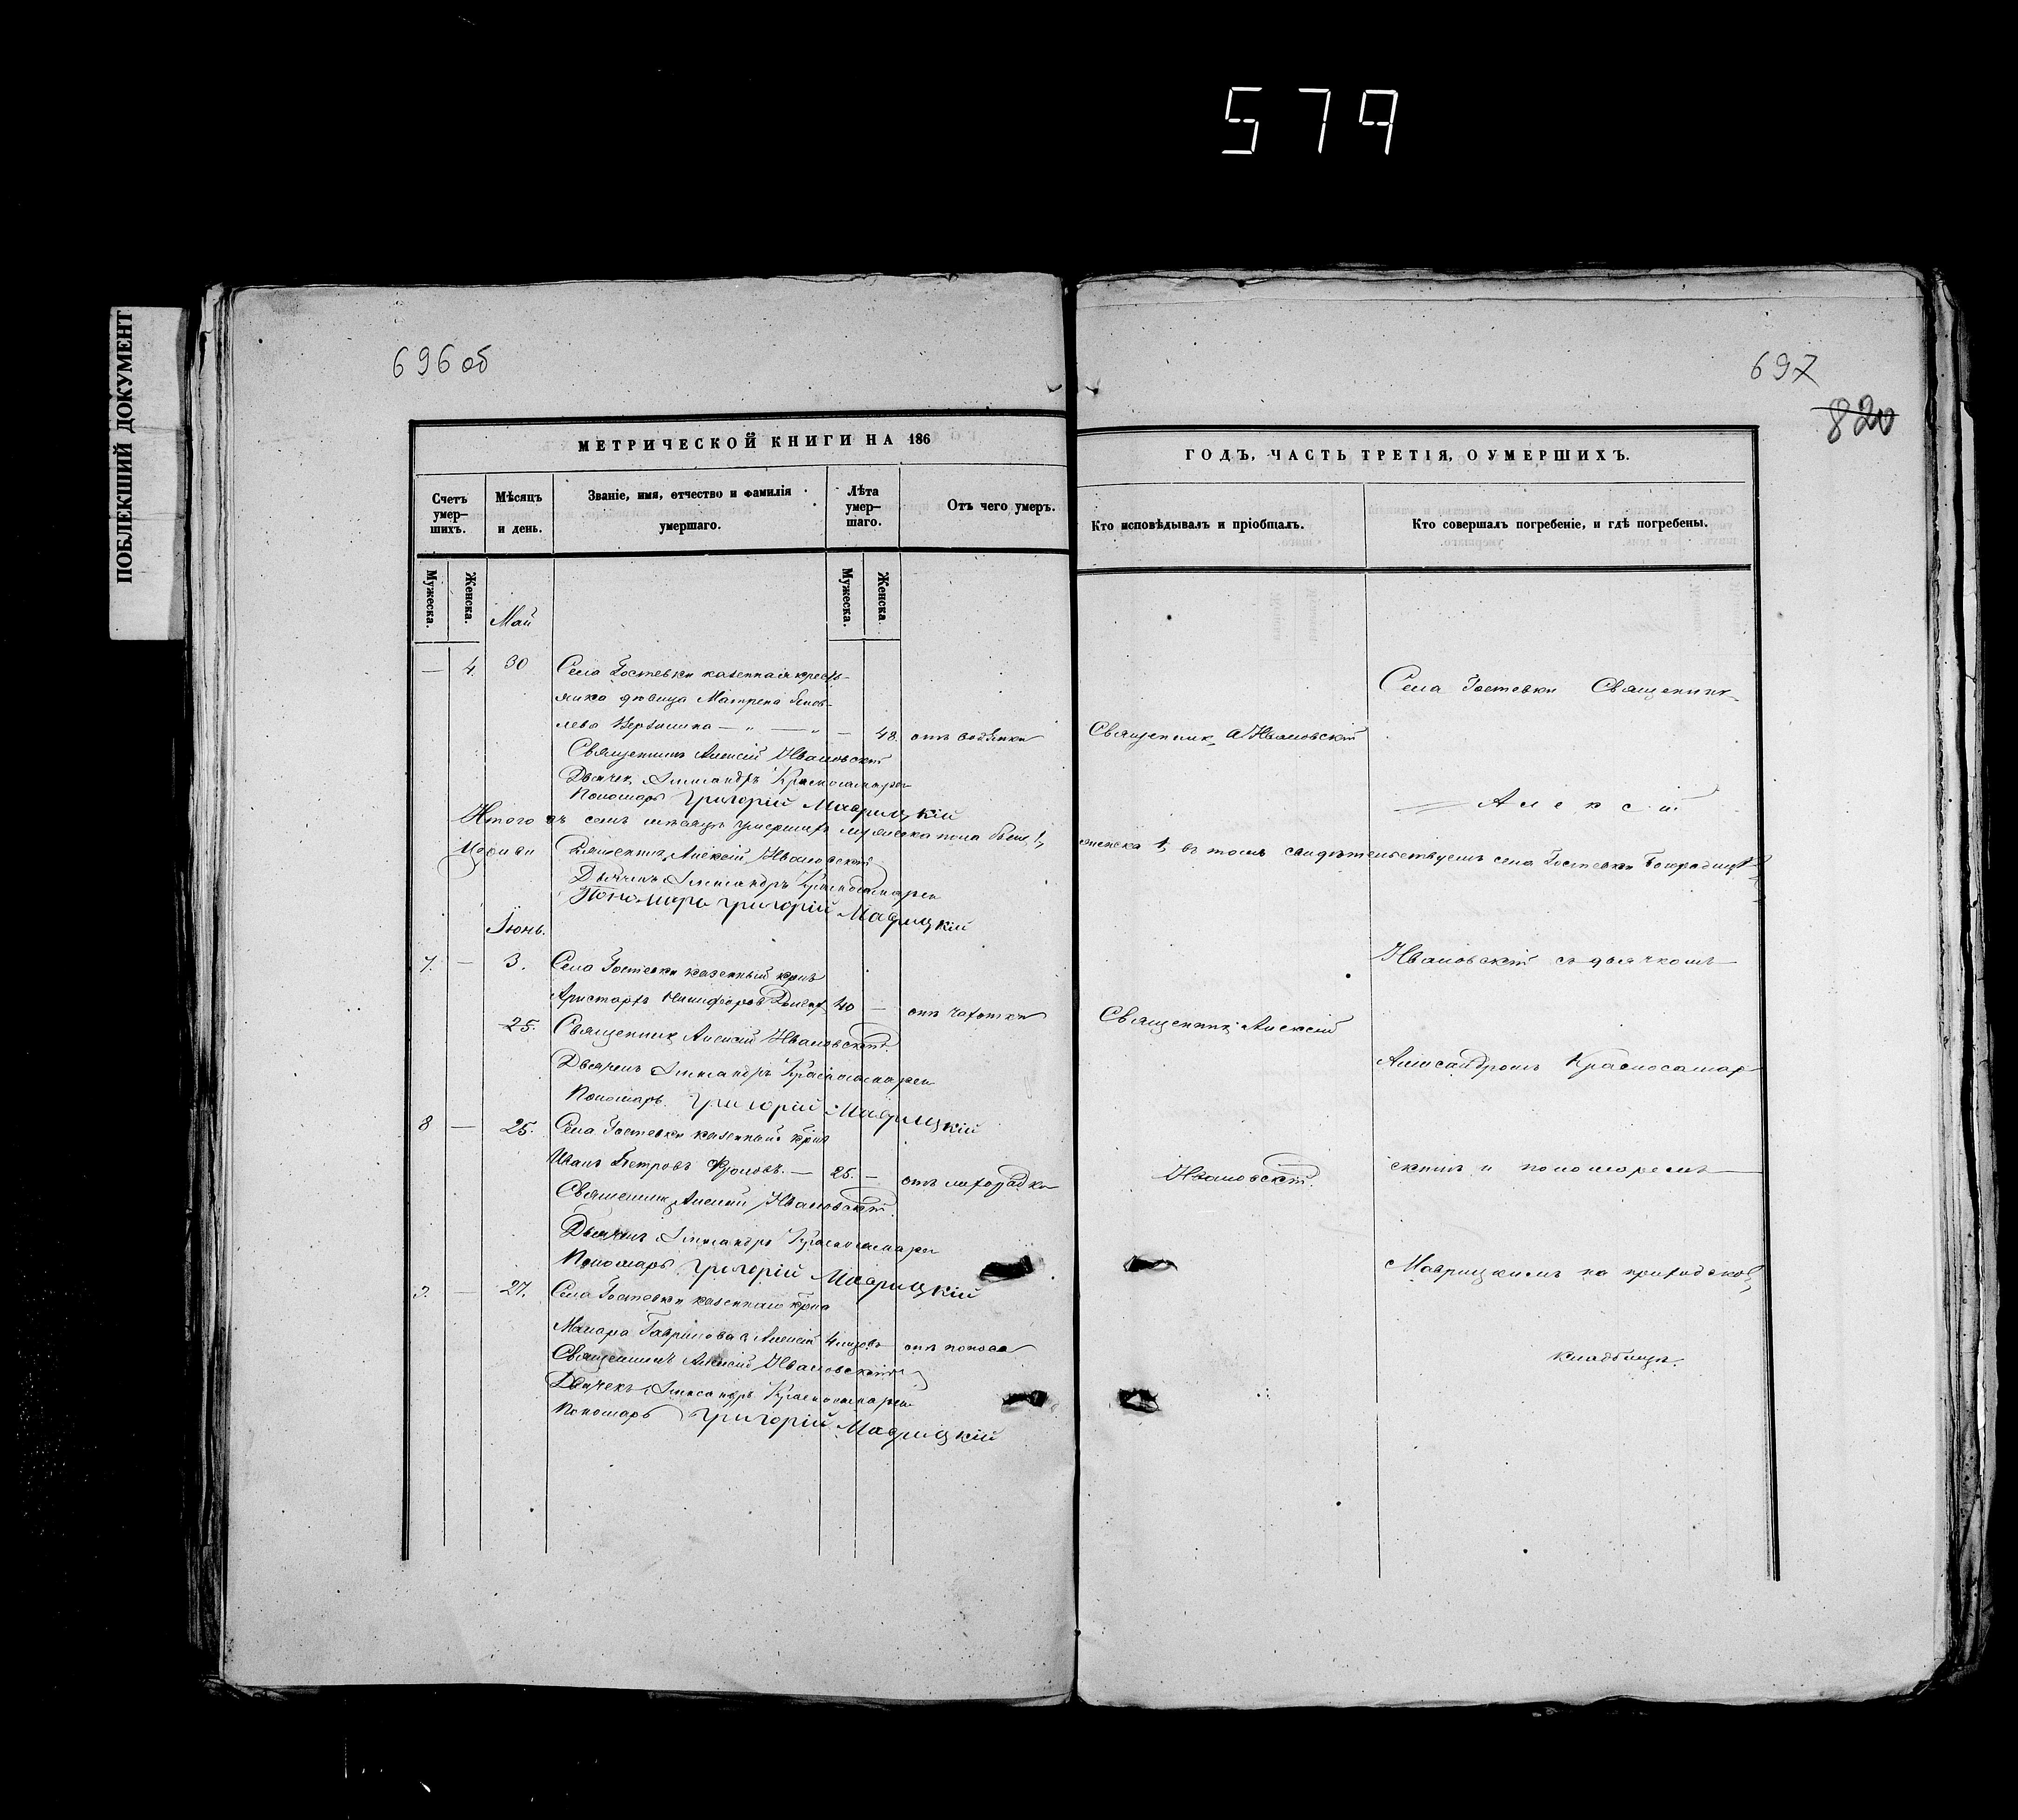 579
ПОБЛЕКШИЙ ДОКУМЕНТ
696 об
МЕТРИЧЕСКОЙ КНИГИ НА 186
Счетъ умер-шихъ.
Мѣсяцъ и день.
Званіе, имя, отчество и фамилія умершаго.
Лѣта умер-шаго.
Отъ чего умеръ.
Мужеска.
Женска.
Мужеска.
Женска.
Май
— 4. 30 Села Гостевки казенная кресть-
янка дѣвица Матрена
лева — „ — „ — 48. отъ водянки
Священникъ Алексій Ивановскій
Дьячекъ Александръ Красносамарски
Пономарь Григорій Маврицкій
Итого въ семъ мѣсяцѣ умершихъ мужеска пола
Священникъ Алексій Ивановскій
Дьячекъ Александръ Красносамарски
Пономарь Григорій Маврицкій
Іюнь.
7. — 3. Села Гостевки казенный крнъ
Аристархъ Никифоровъ 40 — отъ чахотки
25. Священникъ Алексій Ивановскій.
Дьячекъ Александръ Красносамарски
Пономарь. Григорій Маврицкій
8 — 25. Села Гостевки казенный крнъ
Иванъ Петровъ — 25. — отъ лихорадки
Священникъ Алексій Ивановскій.
Дьячекъ Александръ Красносамарски
Пономарь Григорій Маврицкій
9. — 27. Села Гостевки казеннаго крна
Макара Гаврилова с. Алексій 4 мцовъ отъ поноса
Священникъ Алексій Ивановскій
Дьячекъ Александръ Красносамарски
Пономарь Григорій Маврицкій
697
820
ГОДЪ, ЧАСТЬ ТРЕТІЯ, О УМЕРШИХЪ.
Кто исповѣдывалъ и пріобщалъ.
Кто совершалъ погребеніе, и гдѣ погребены.
Села Гостевки Священникъ
Священникъ А Ивановскій
Алексій
женска 1, въ томъ свидѣтельствуемъ села Гостевки
Ивановскій съ дьячкомъ
Священникъ Алексій
Александромъ Красносамар-
Ивановскій.
скимъ и пономаремъ
Маврицкимъ на приходскомъ
кладбищѣ.